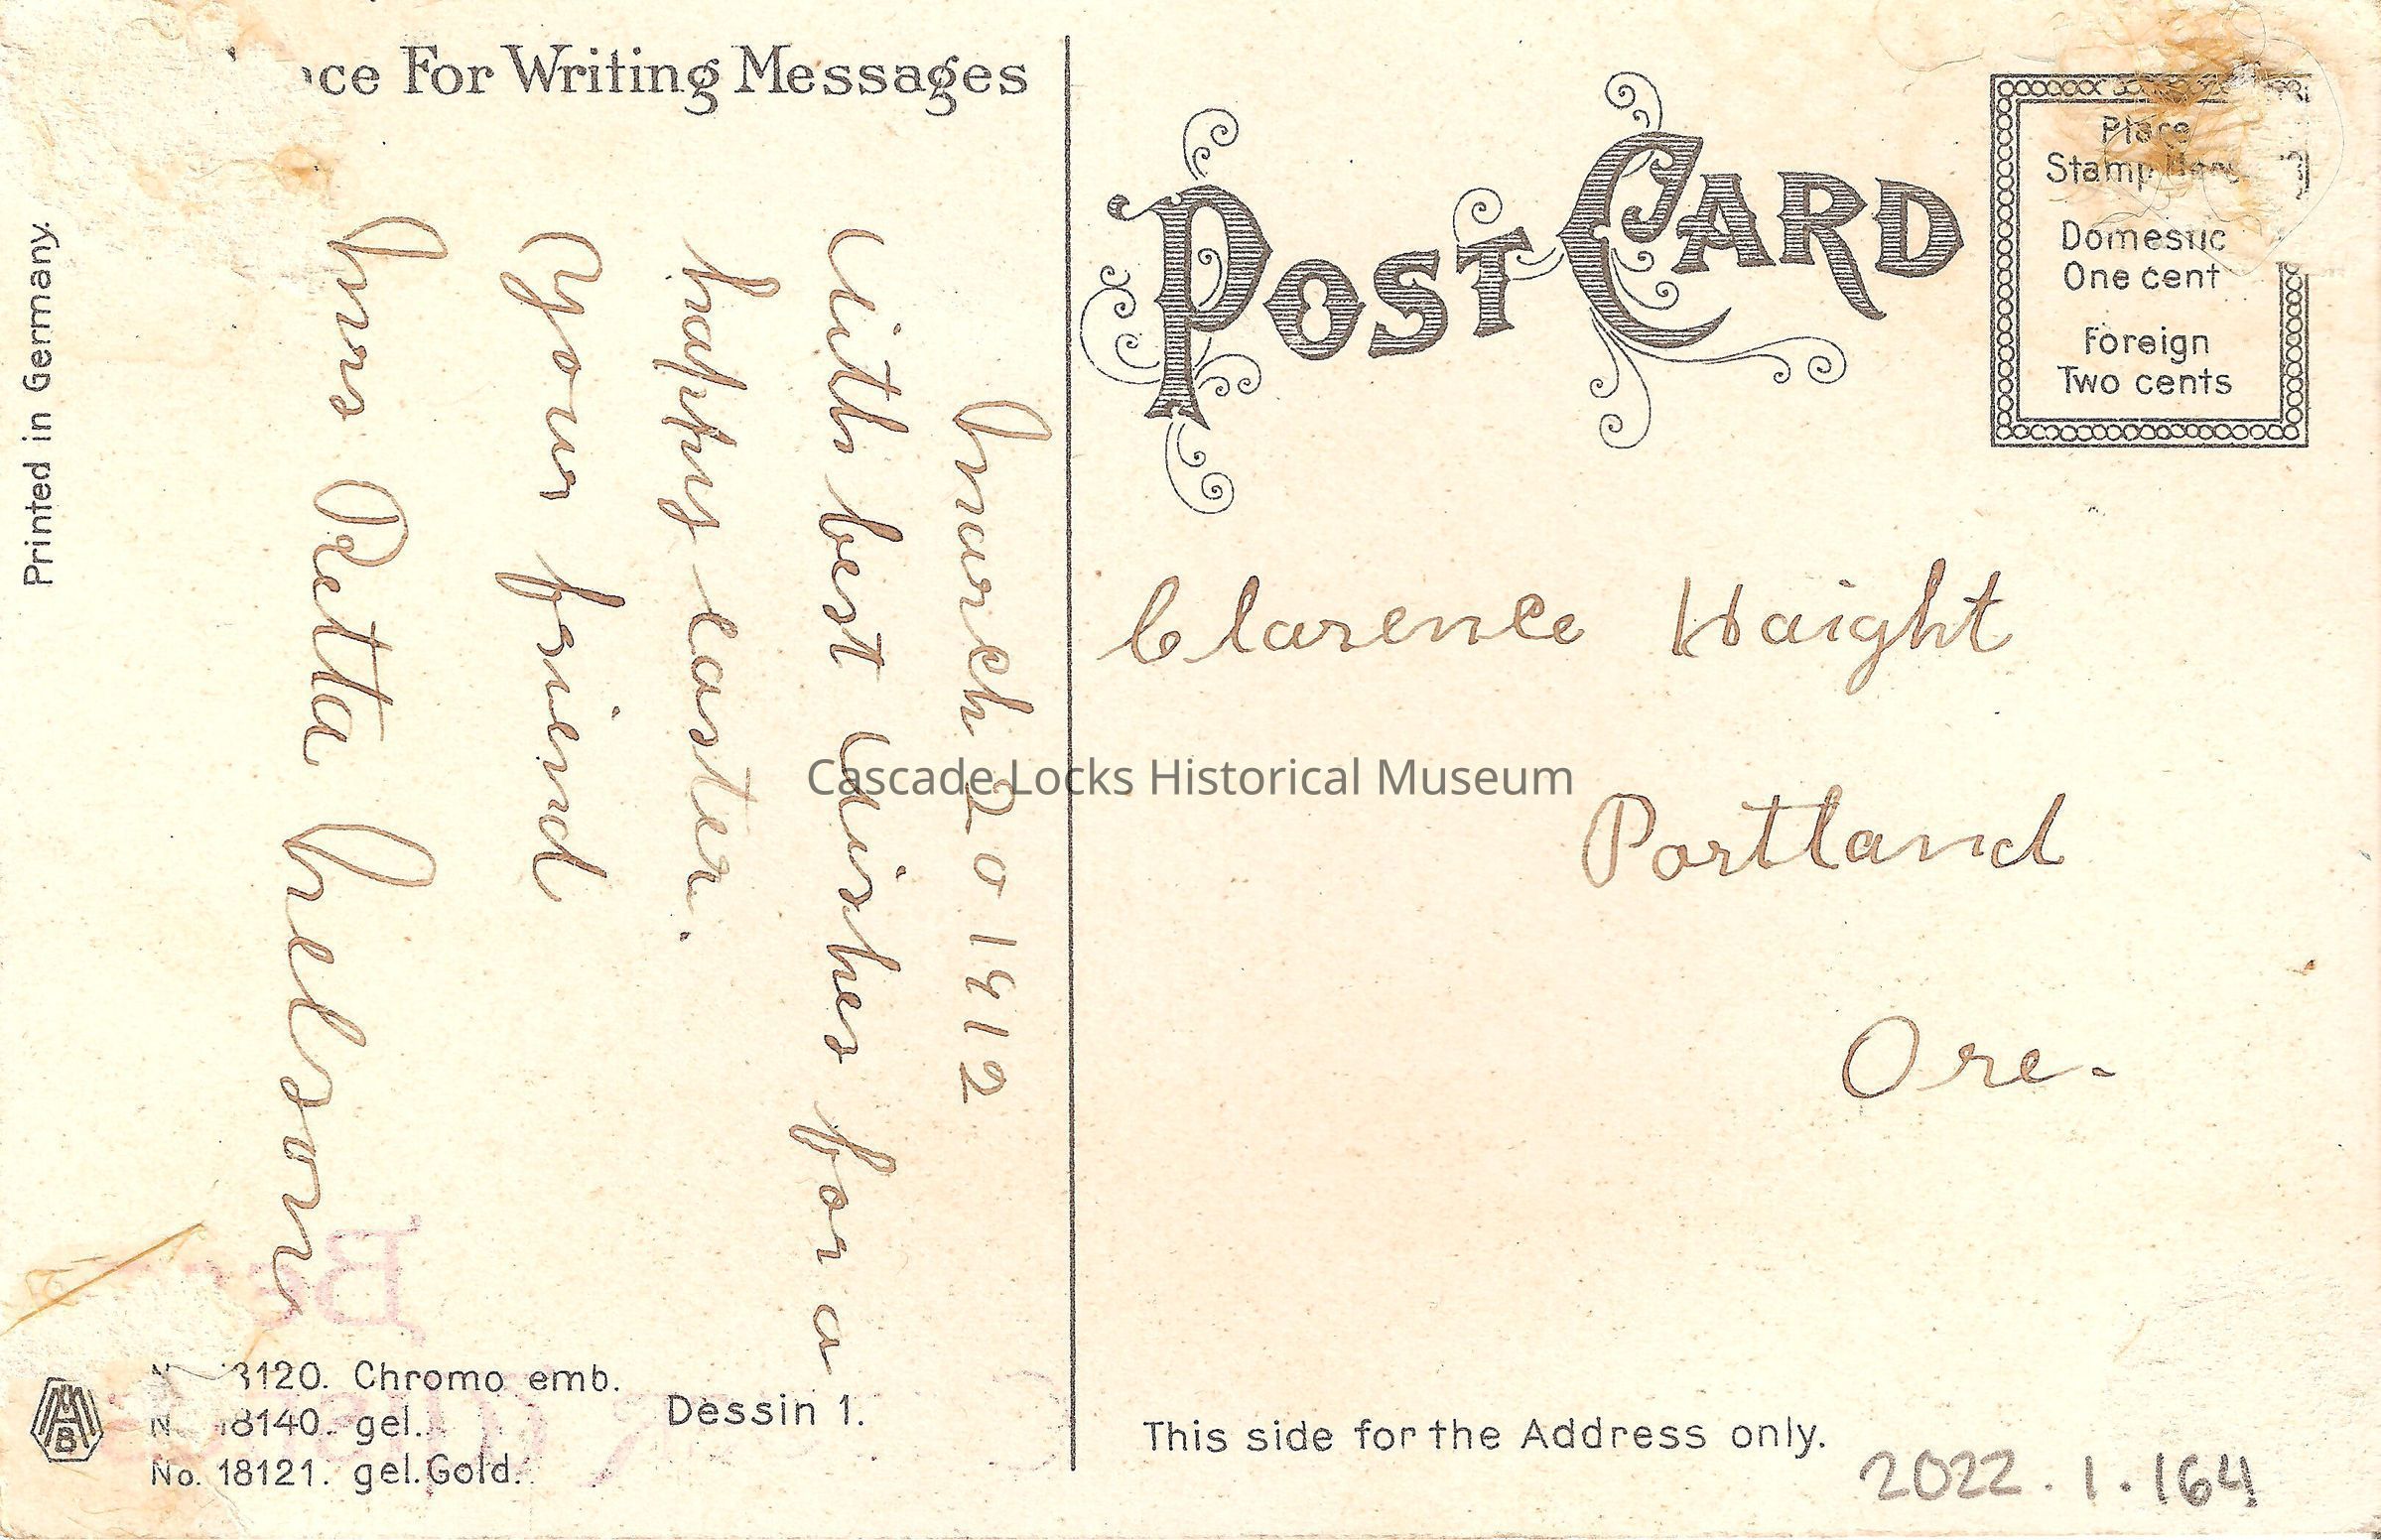 ce For Writing Messages
Printed in Germany.
March 20 1912
With best wishes for a
happy easter.
Your friend
Mrs Retta Nelson
3120. Chromo emb.
18140. gel.
No. 18121. gel. Gold.
Dessin 1.
MAB
POST CARD
Place
Stamp Here
Domestic
One cent
Foreign
Two cents
Clarence Haight
Portland
Ore.
This side for the Address only.
2022.1.164
Cascade Locks Historical Museum